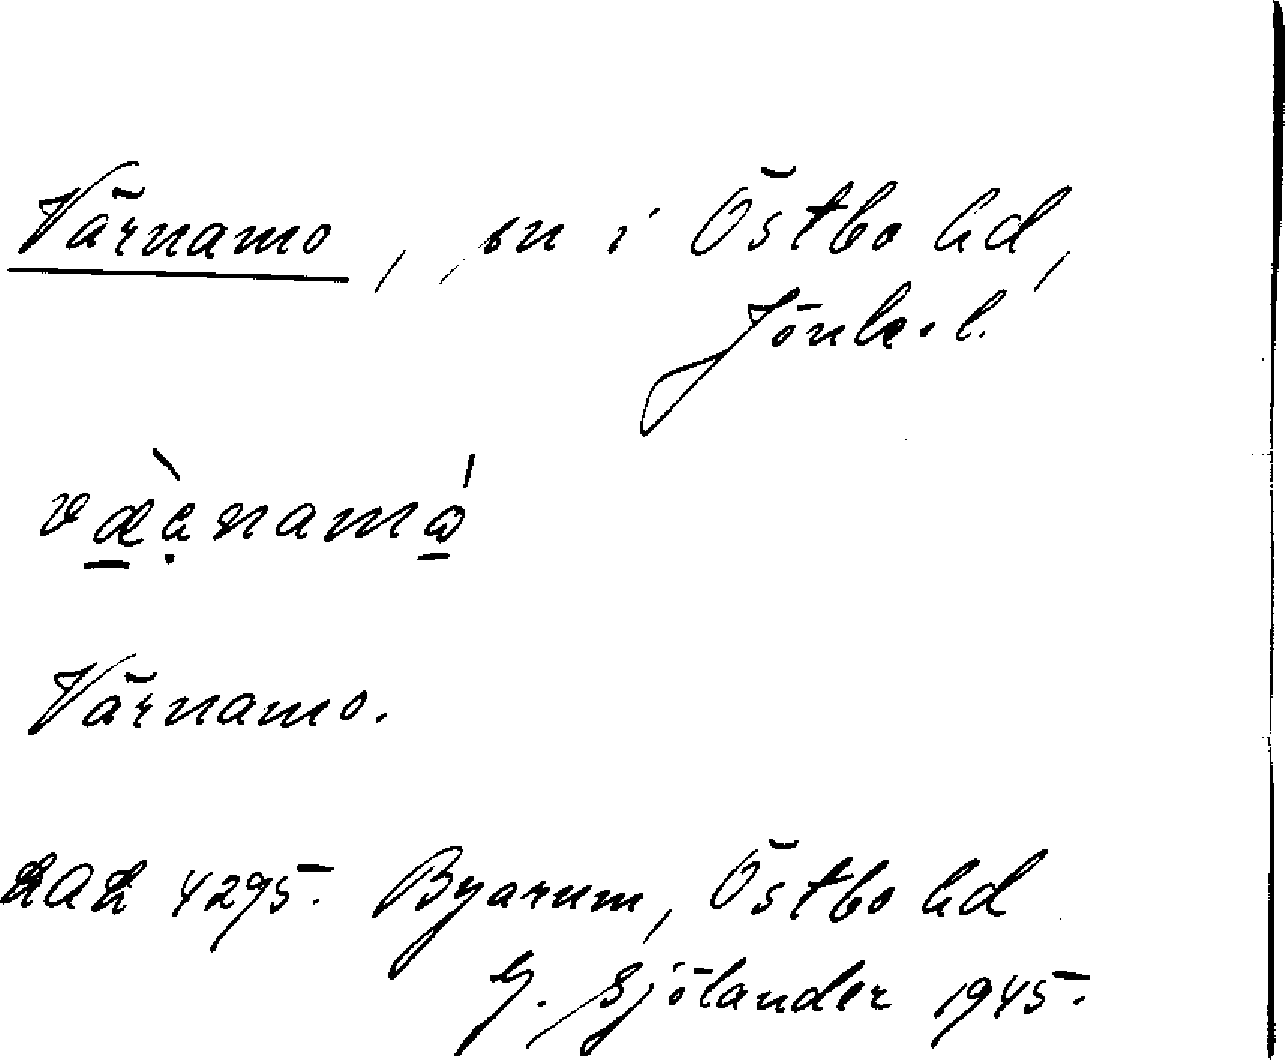 Värnamo, sn i Östbo hd,
Jönk. l.
Värnamo.
4295. Byarum, Östbo hd
G. Sjölander 1945.